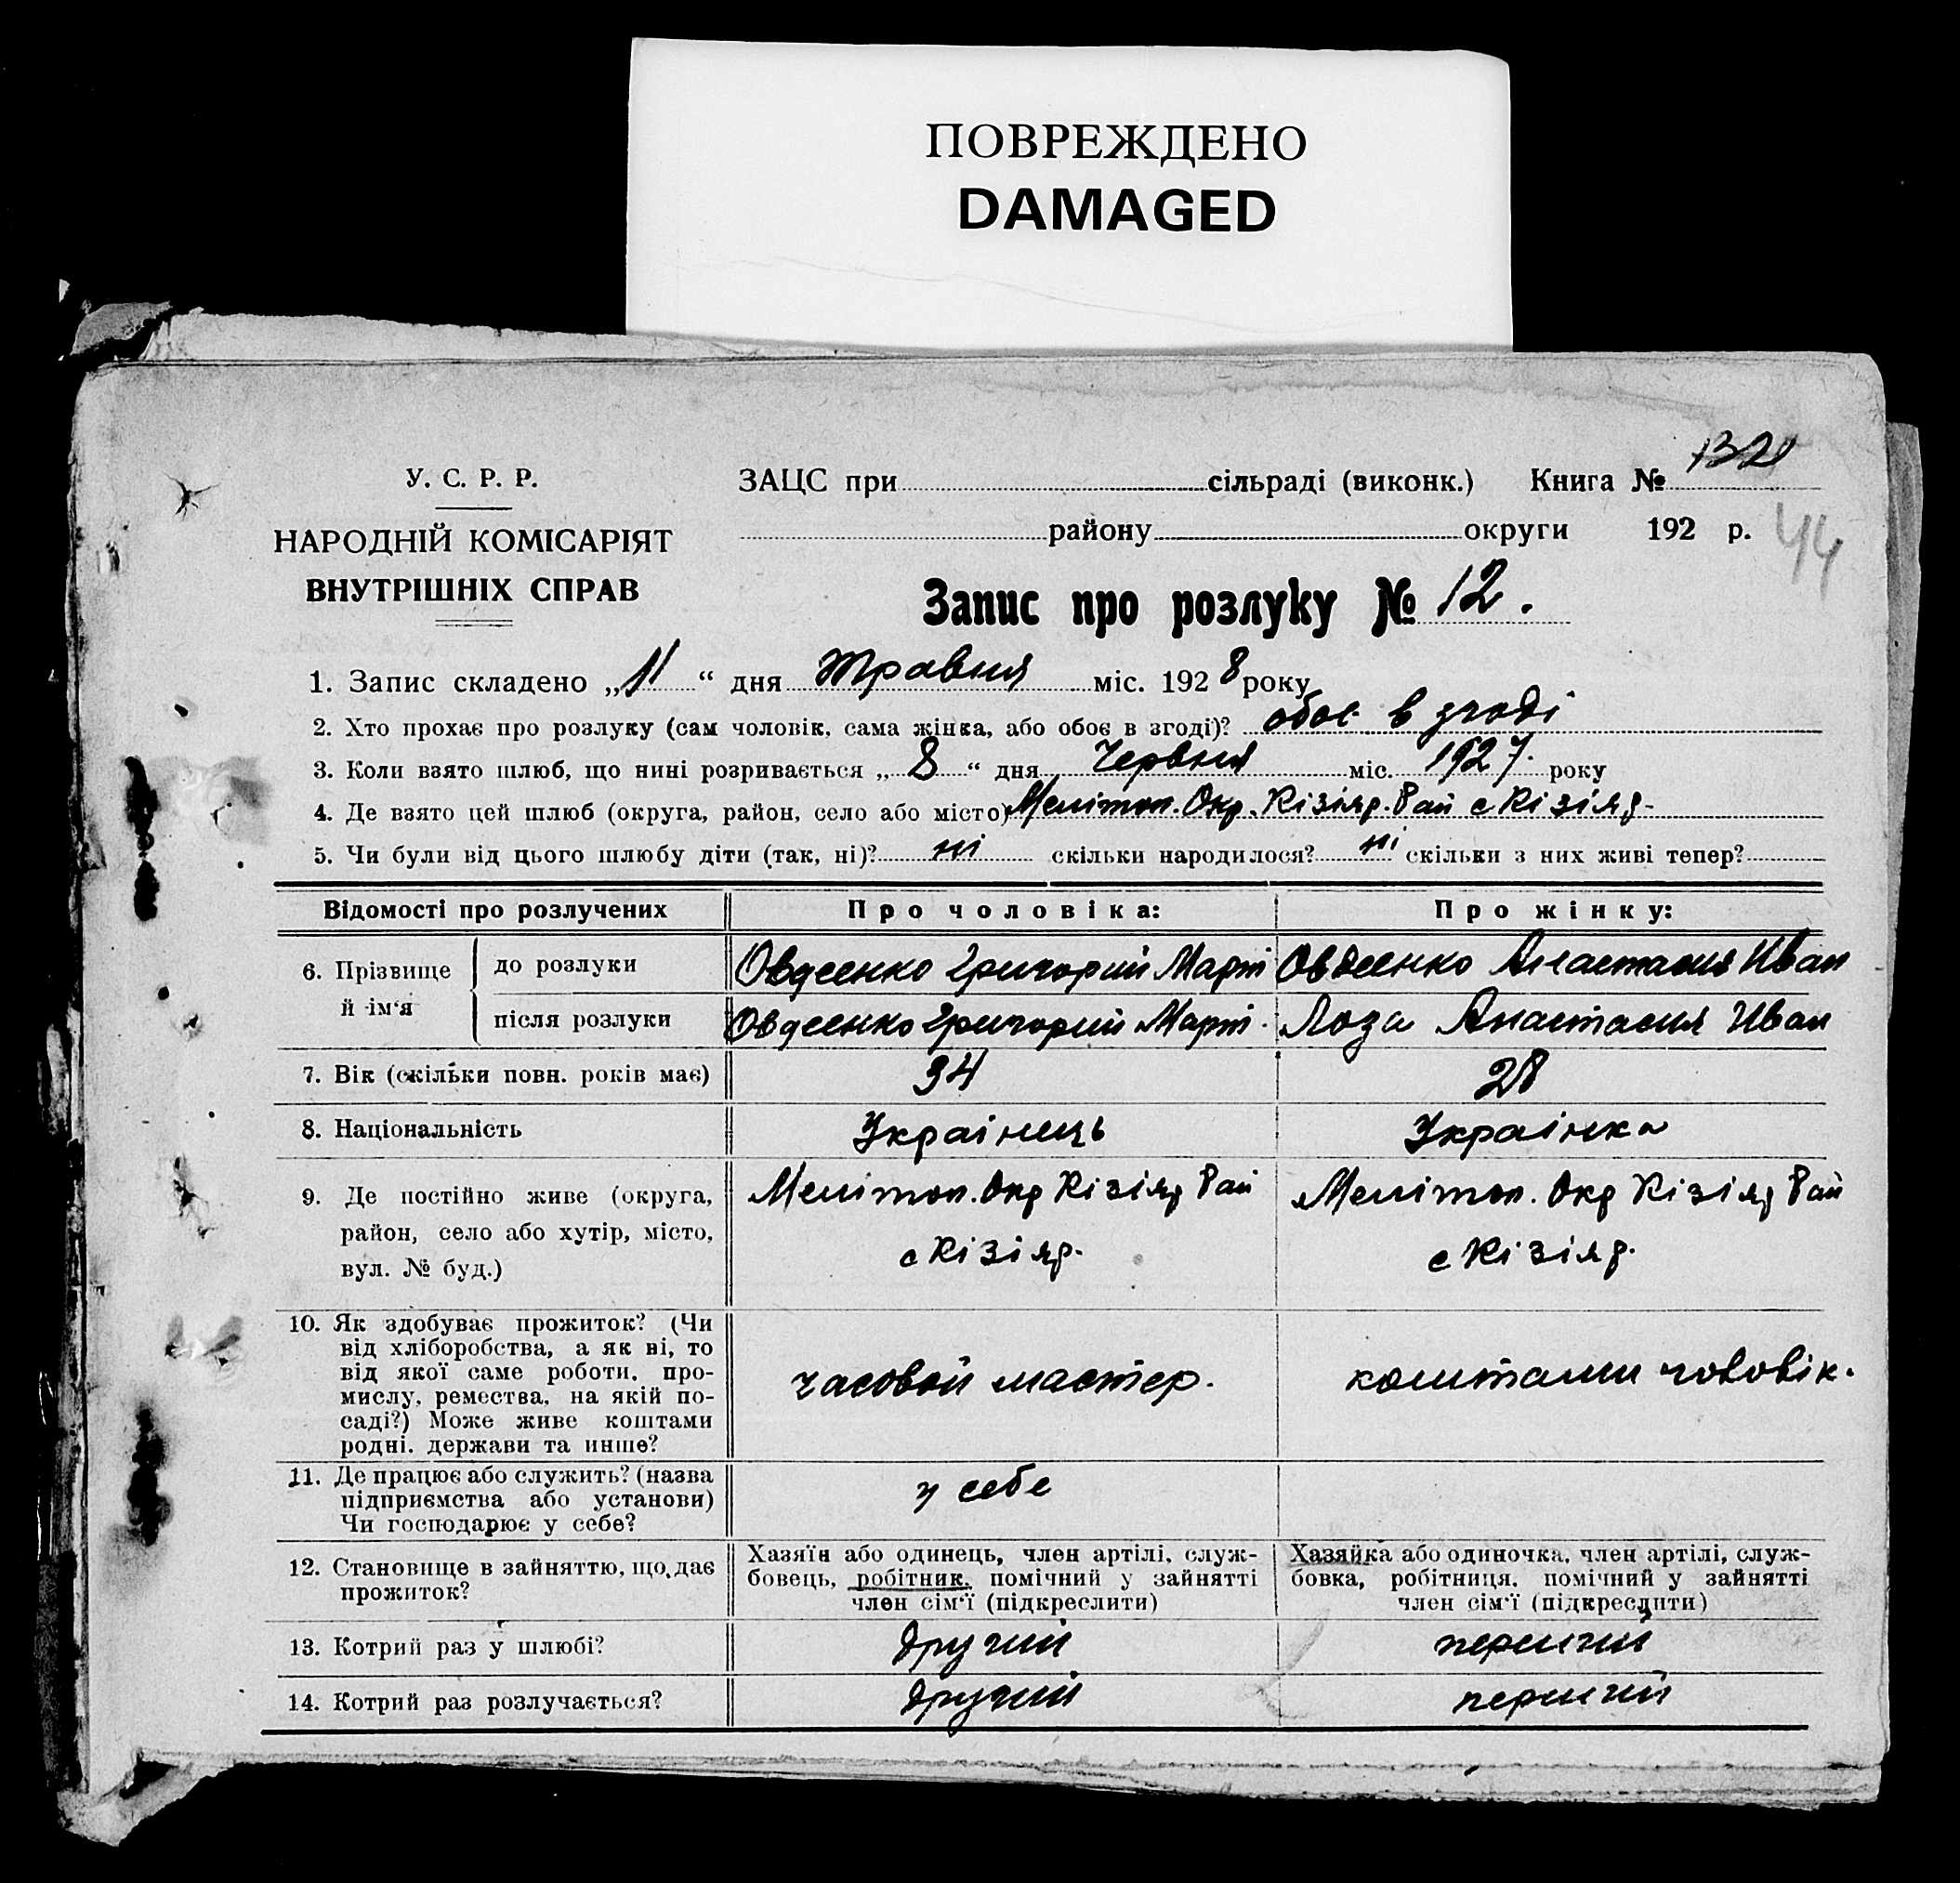 ПОВРЕЖДЕНО
DAMAGED
У. С. Р. Р.
НАРОДНІЙ КОМІСАРІЯТ
ВНУТРІШНІХ СПРАВ
ЗАЦС при сільраді (виконк.) Книга № 132
району округи 192 р. 44
Запис про розлуку № 12.
1. Запис складено „11“ дня травня міс. 1928 року
2. Хто прохає про розлуку (сам чоловік, сама жінка, або обоє в згоді)? обоє в згоді
3. Коли взято шлюб, що нині розривається „8“ дня Червня міс. 1927. року
4. Де взято цей шлюб (округа, район, село або місто) Мелітоп. Окр. Кізіяр. Рай с Кізіяр-
5. Чи були від цього шлюбу діти (так, ні)? ні скільки народилося? ні скільки з них живі тепер?
Відомості про розлучених Про чоловіка: Про жінку:
6. Прізвище й ім‘я
до розлуки Овдеенко Григорий Март Овдеенко Анастасия Иван
після розлуки Овдеенко Григорий Март. Лоза Анастасия Иван
7. Вік (скільки повн. років має) 34 28
8. Національність Українець Українка
9. Де постійно живе (округа, Мелітоп. Окр Кізіяр Рай Мелітоп. Окр Кізіяр Рай
район, село або хутір, місто, с Кізіяр. с Кізіяр.
вул. № буд.)
10. Як здобуває прожиток? (Чи
від хліборобства, а як ні, то
від якої саме роботи, про-
мислу, ремества, на якій по- часовой мастер. коштами чоловік.
саді?) Може живе коштами
родні, держави та инше?
11. Де працює або служить? (назва у себе
підприємства або установи)
Чи господарює у себе?
12. Становище в зайняттю, що дає
прожиток?
Хазяїн або одинець, член артілі, служ-
бовець, робітник, помічний у зайнятті
член сім‘ї (підкреслити)
Хазяйка або одиночка, член артілі, служ-
бовка, робітниця, помічний у зайнятті
член сім‘ї (підкреслити)
13. Котрий раз у шлюбі? другий перший
14. Котрий раз розлучається? другий перший